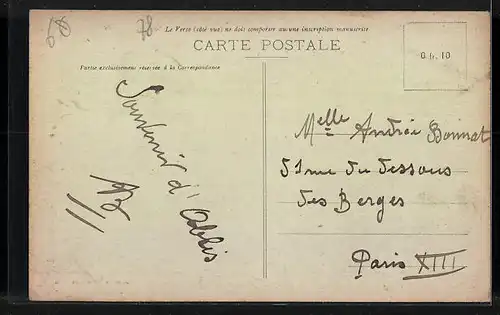 78
Le Verso (côté vue) ne doit comporter aucune inscription manuscrite
CARTE POSTALE
Partie exclusivement réservée à la Correspondance
6.6.10
Souvenir d'Ablis
Melle Andrée Bonnat
51 rue du dessous
des Berges
Paris XIII